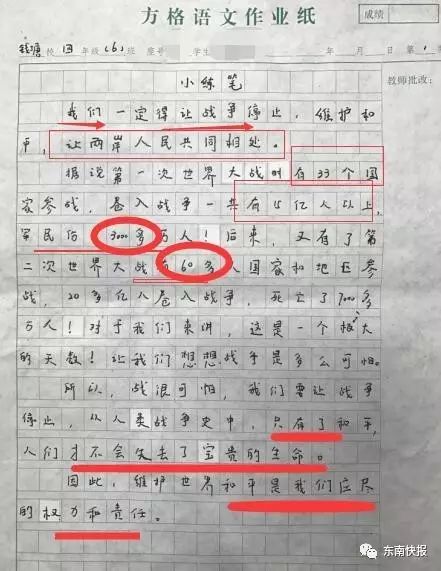 方格语文作业纸
成绩
钱塘校四年级(6)班 座号 学生 年 月 日 第1
教师批改:
小练笔
我们一定得让战争停止，维护和
平，让两岸人民共同相处。
据说第一次世界大战时有33个国
家参战，卷入战争一共有15亿人以上，
军民伤3000多万人！后来，又有了第
二次世界大战有60多人国家和地区参
战，20多亿人卷入战争，死亡了7000多
万人！对于我们来讲，这是一个极大
的天数！让我们想想战争是多么可怕。
所以，战很可怕，我们要让战争
停止，从人类战争史中，只有了和平，
人们才不会失去了宝贵的生命。
因此，维护世界和平是我们应尽
的权力和责任。
东南快报